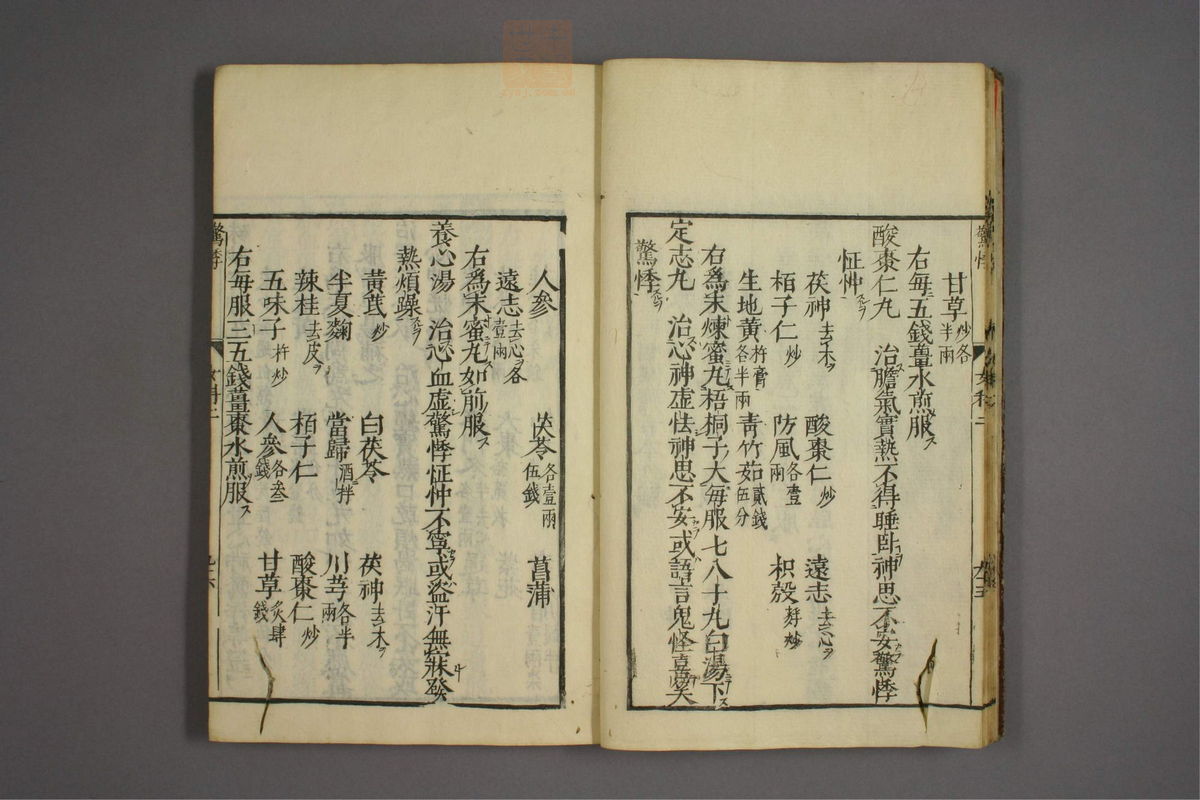 甘草炒各半兩
右每五錢薑水煎服ス
酸棗仁丸　治膽氣實熱不得睡卧神思不安驚悸
怔忡
茯神去木　酸棗仁炒　遠志去心
栢子仁炒　防風各壹兩　枳殼麩炒
生地黃杵膏各半兩　青竹茹貳錢伍分
右為末煉蜜丸梧桐子大每服七八十丸白湯下
定志丸　治心神虛怯神思不安或語言鬼怪喜笑
驚悸
驚悸　女科二
人參　茯苓各壹兩伍錢　菖蒲
遠志去心各壹兩
右為末蜜丸如前服
養心湯　治心血虛驚悸怔忡不寧或盜汗無寐發
熱煩躁
黃茋炒　白茯苓　茯神去木
半夏麴　當歸酒拌　川芎各半兩
辣桂去皮　栢子仁　酸棗仁炒
五味子杵炒　人參各叁錢　甘草炙肆錢
右每服三五錢薑棗水煎服
驚悸　女科二　九十六